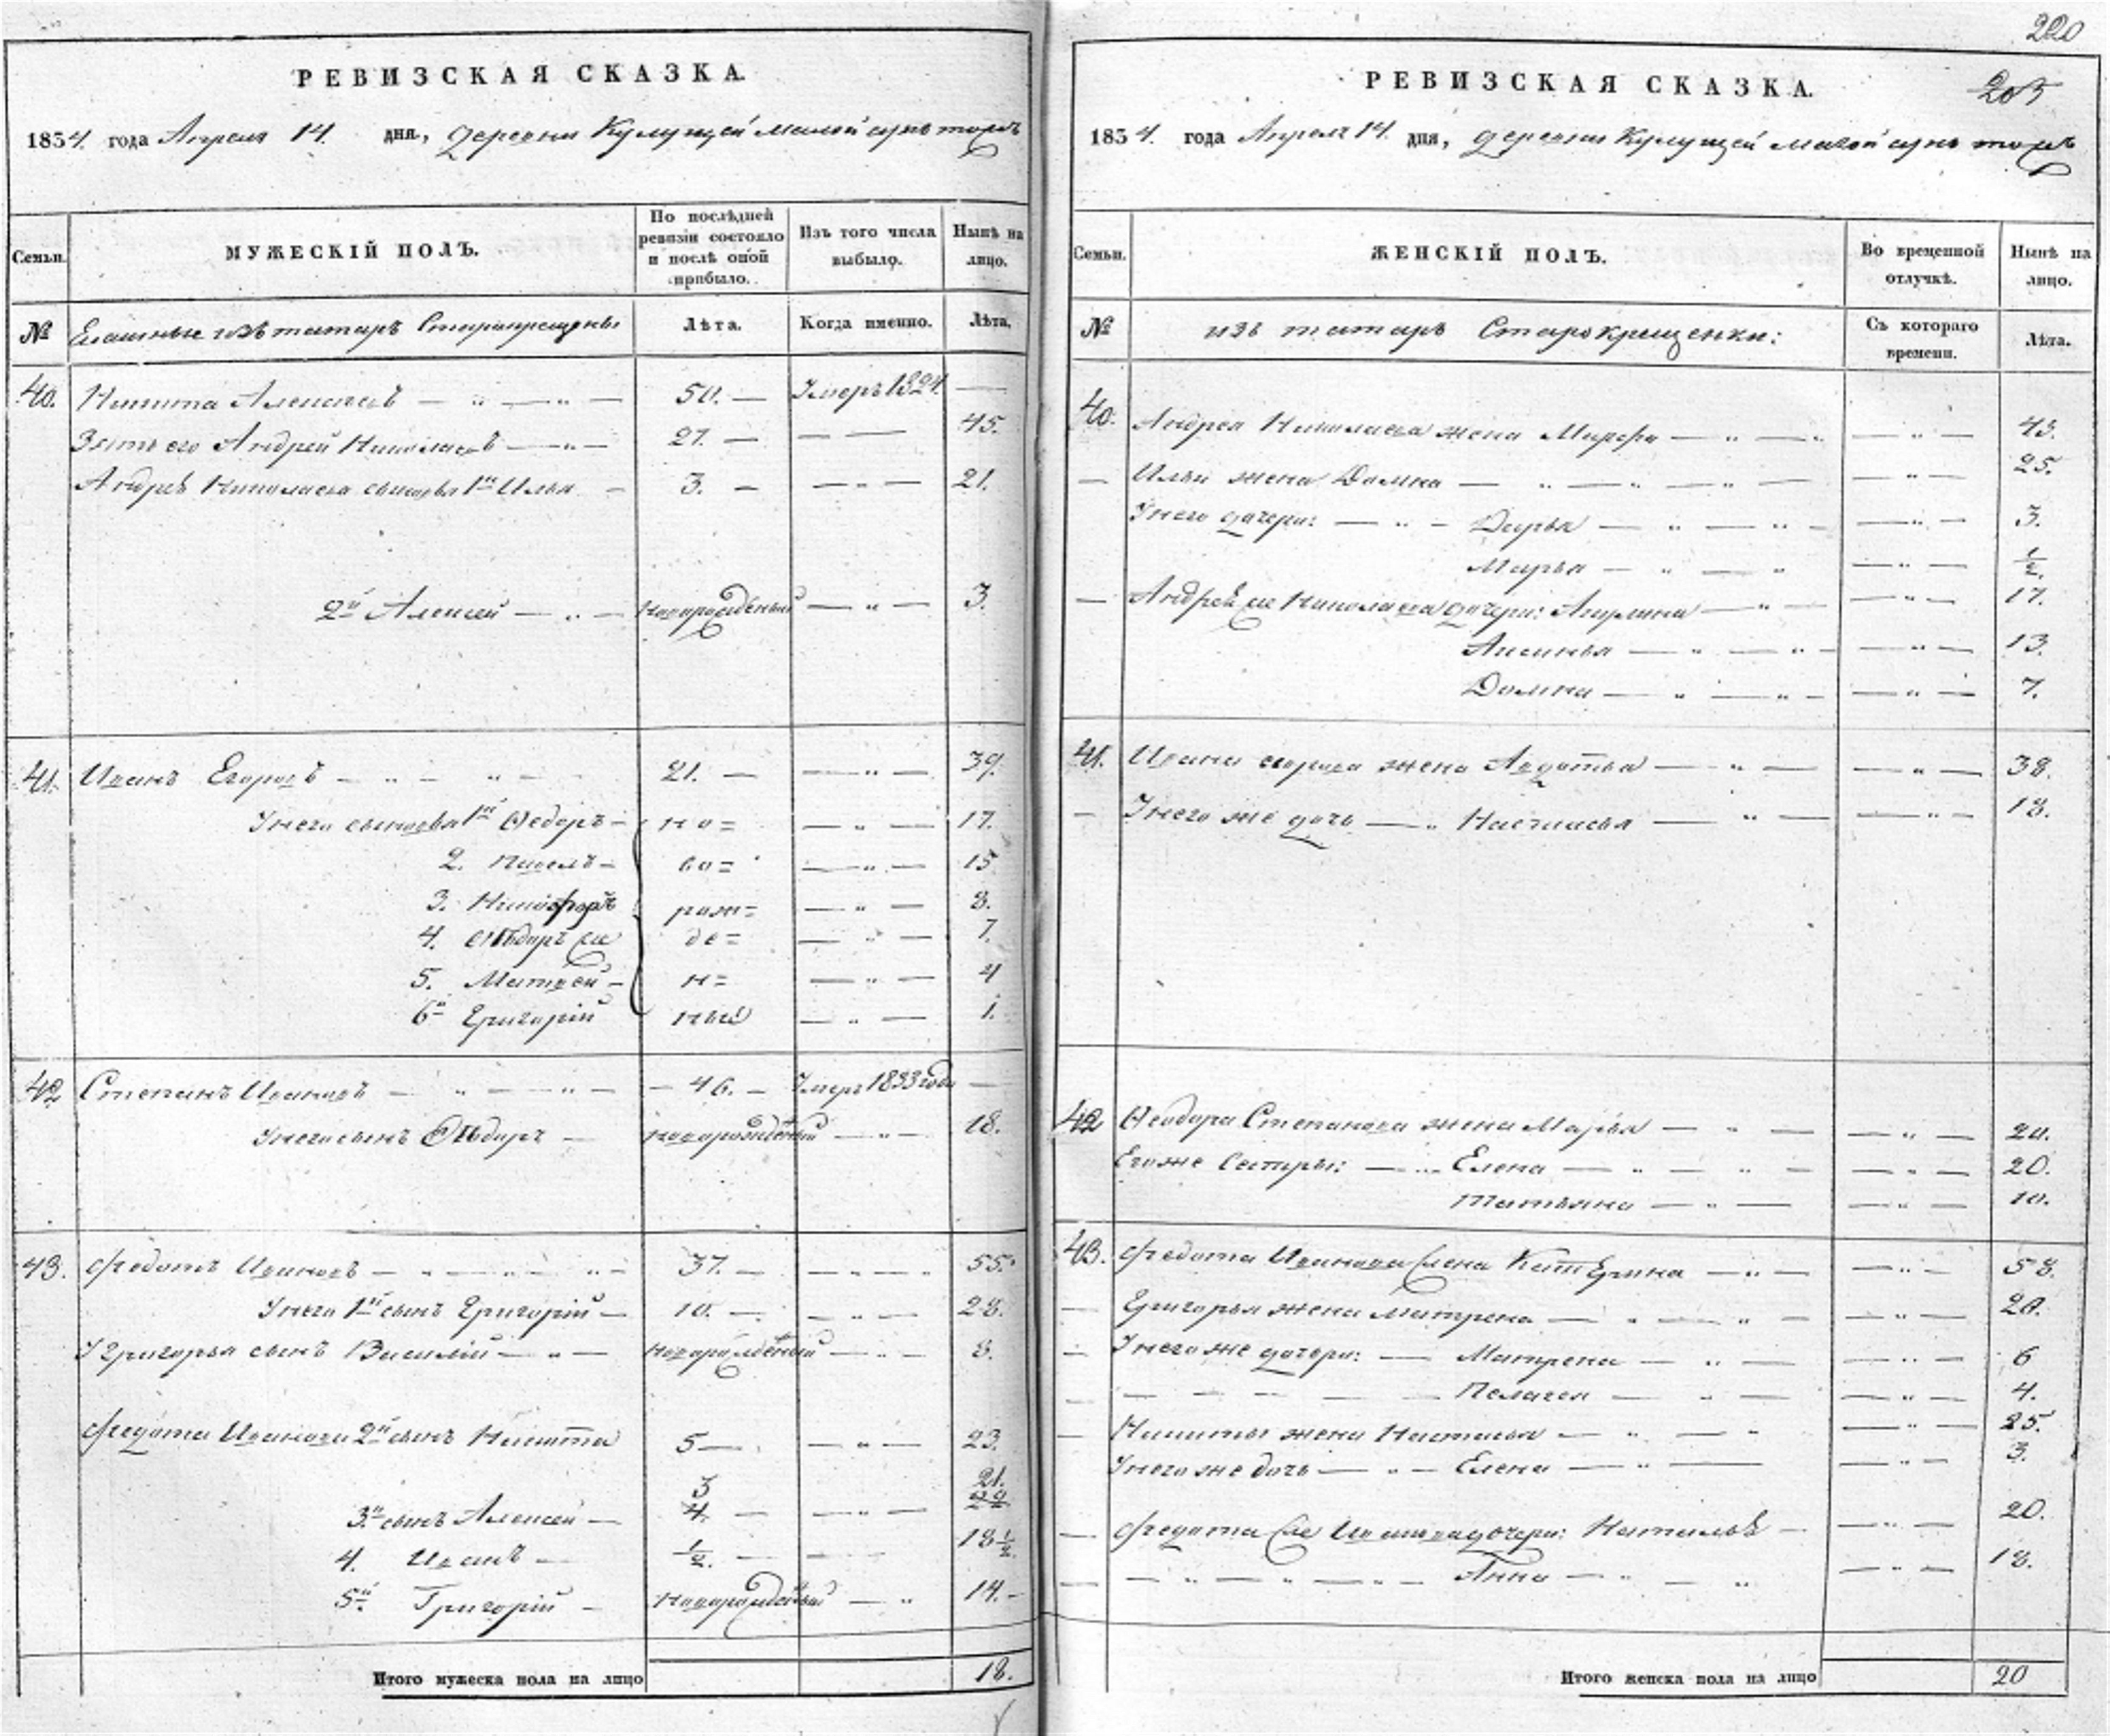 РЕВИЗСКАЯ СКАЗКА.
1834. года Апреля 14. дня, деревни Кулущей малой тожъ
Семьи. МУЖЕСКІЙ ПОЛЪ. По послѣдней ревизіи состояло и послѣ оной прибыло. Изъ того числа выбыло. Нынѣ на лицо.
№ изъ татаръ Старокрещены Лѣта. Когда именно. Лѣта.
40. Никита Алексѣевъ — „ — „ — 50. — Умеръ 1824. —
Зять его Андрей Николаевъ — „ — 27. — — — 45.
Андрея Николаева сыновья 1й Илья — 3. — — „ — 21.
2й Алексей — „ — Новорожденный — „ — 3.
41. Иванъ Егоровъ — „ — „ — 21. — — „ — 39.
У него сыновья 1й Ѳедоръ — но= — „ — 17.
2. Павелъ — во= — „ — 15
3. Никифоръ рож= — „ — 8.
4. Ѳедоръ же де= — „ — 7.
5. Матвей — н= — „ — 4
6й Григорій ный — „ — 1.
42 Степанъ Ивановъ — „ — „ — — 46. — Умеръ 1833 года —
У него сынъ Ѳедоръ — новорожденный — „ — 18.
43. Федотъ Ивановъ — „ — „ — „ — 37. — — „ — „ 55.
У него 1й сынъ Григорій — 10. — — „ — 28.
У Григорья сынъ Василій — „ — новорожденный — „ — 8.
Федота Иванова 2й сынъ Никита 5 — — „ — 23.
3 21.
3й сынъ Алексей — 4. — — „ — 22
4. Иванъ — 1/2. — — „ — 18 1/2.
5й Григорій — Новорожденный — „ 14. —
Итого мужеска пола на лицо 18.
220
205
РЕВИЗСКАЯ СКАЗКА.
1834. года Апреля 14. дня, деревни Кулущей малой тожъ
Семьи. ЖЕНСКІЙ ПОЛЪ. Во временной отлучкѣ. Нынѣ на лицо.
№ изъ татаръ Старокрещенки: Съ котораго времени. Лѣта.
40. Андрея Николаева жена Марфа — „ — „ — „ — 43.
— Ильи жена Домна — „ — „ — „ — — „ — 25.
У него дочери: — „ — Дарья — „ — „ — — „ — 3.
Марья — „ — „ — „ — 1/2.
— Андрея же Николаева дочери: Акулина — „ — — „ — 17.
Аксинья — „ — „ — — „ — 13.
Домна — „ — „ — — „ — 7.
41. Ивана Егорова жена Авдотья — „ — — „ — 38.
— У него же дочь — „ Настасья — „ — — „ — 18.
42 Ѳеодора Степанова жена Марья — „ — — „ — 20.
Его же Сестры: — „ Елена — „ — „ — — „ — 20.
Татьяна — „ — — „ — 10.
43. Федота Иванова жена Катерина — „ — — „ — 58.
— Григорья жена Матрена — „ — „ — — „ — 28.
— У него же дочери: — Матрена — „ — — „ — 6
— — — — — Пелагея — „ — — „ — 4.
— Никиты жена Настасья — „ — „ — „ — 25.
У него же дочь — „ — Елена — „ — — „ — 3.
— Федота же Иванова дочери: Наталья — — „ — 20.
— — „ — „ — „ — Анна — „ — „ — „ — 18.
Итого женска пола на лицо 20